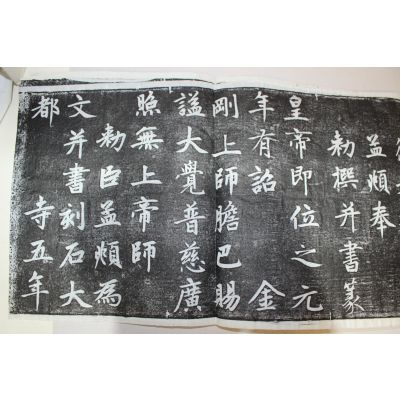 孟頫奉
勅撰并書篆
皇帝即位之元
年有詔金
剛上師膽巴賜
謚大覺普慈廣
照無上帝師
勅臣孟頫為
文并書刻石大
都寺五年